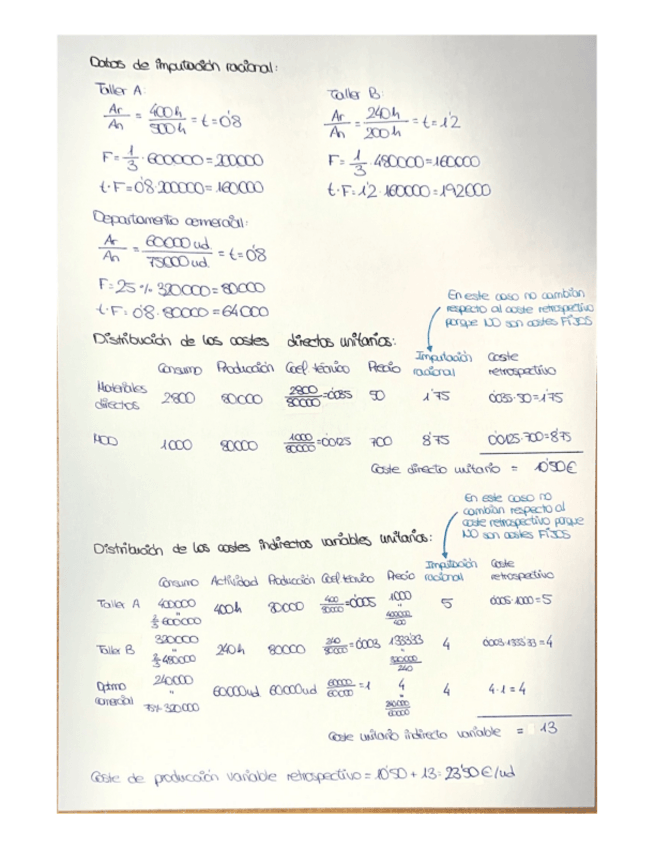 Datos de imputación racional:
Taller A:
Ar/An = 400h/500h = t = 0'8
F = 1/3 · 600000 = 200000
t·F = 0'8·200000 = 160000
Taller B:
Ar/An = 240h/200h = t = 1'2
F = 1/3 · 480000 = 160000
t·F = 1'2·160000 = 192000
Departamento comercial:
Ar/An = 60000 ud/75000 ud = t = 0'8
F = 25% 320000 = 80000
t·F = 0'8·80000 = 64000
En este caso no cambian
respecto al coste retrospectivo
porque NO son costes FIJOS
Distribución de los costes directos unitarios:
Consumo Producción Coef técnico Precio Imputación racional Coste retrospectivo
Materiales directos 2800 80000 2800/80000 = 0'035 50 1'75 0'035·50 = 1'75
MOD 1000 80000 1000/80000 = 0'0125 700 8'75 0'0125·700 = 8'75
Coste directo unitario = 10'50€
En este caso no
cambian respecto al
coste retrospectivo porque
NO son costes FIJOS
Distribución de los costes indirectos variables unitarios:
Consumo Actividad Producción Coef técnico Precio Imputación racional Coste retrospectivo
Taller A 400000 = 2/3 600000 400h 80000 400/80000 = 0'005 1000 = 400000/400 5 0'005·1000 = 5
Taller B 320000 = 2/3 480000 240h 80000 240/80000 = 0'003 1333'33 = 320000/240 4 0'003·1333'33 = 4
Dptmo comercial 240000 = 75% 320000 60000ud 60000ud 60000/60000 = 1 4 = 240000/60000 4 4·1 = 4
Coste unitario indirecto variable = 13
Coste de producción variable retrospectivo = 10'50 + 13 = 23'50 €/ud